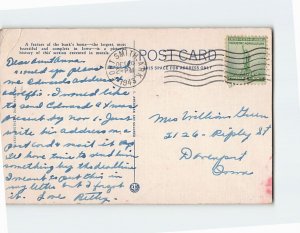 A feature of the bank's home—the largest, most
beautiful and complete in Iowa—is a pictorial
history of this section executed in mosaic.
POST CARD
THIS SPACE FOR ADDRESS ONLY
FORT SMITH, ARK.
2 PM
1943
Dear Aunt Anna,
send me Edwards address
I would like
to send Edward a Xmas
present by nov 1. Just
write his address on a
post card so I will
have time to send him
something by the deadline
I meant to put this in
my letter but I forgot
it. Love Betty.
Mrs William Green
2126 - Ripley St
Davenport
Iowa